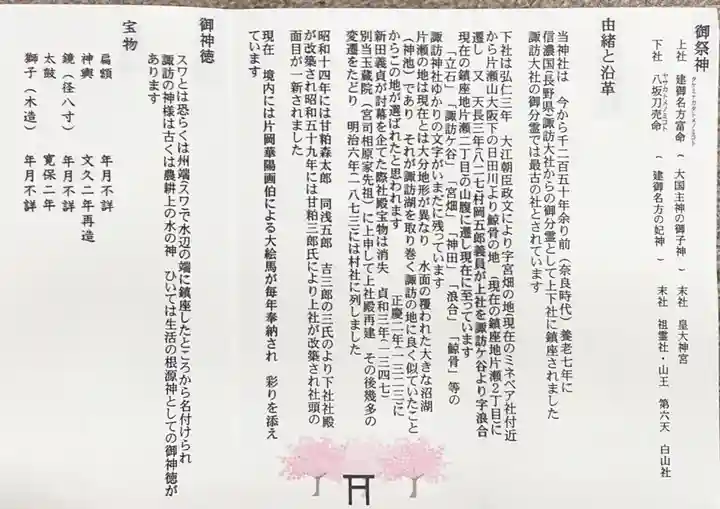 御祭神
上社　建御名方富命　（　大国主神の御子神　）　末社　皇大神宮
タケミナカタトメノミコト
下社　八坂刀売命　（　建御名方の妃神　）　末社　祖霊社・山王　第六天　白山社
ヤサカトメノミコト
由緒と沿革
当神社は　今から千二百五十年余り前（奈良時代）　養老七年に
信濃国（長野県）諏訪大社からの御分霊として上下社に鎮座されました
諏訪大社の御分霊では最古の社とされています
下社は弘仁三年　大江朝臣政文により字宮畑の地（現在のミネベア社付近
から片瀬山大阪下の日田川）より鯨骨の地（現在の鎮座地片瀬２丁目）に
遷し　又　天長三年（八二七）村岡五郎義員が上社を諏訪ケ谷より字浪合
現在の鎮座地片瀬二丁目）の山腹に遷し現在に至っています
「立石」「諏訪ケ谷」「宮畑」「神田」「浪合」「鯨骨」等の
諏訪神社ゆかりの文字がいまだに残っています
片瀬の地は現在とは大分地形が異なり　水面の覆われた大きな沼湖
（神池）であり　それが諏訪湖を取り巻く諏訪の地に良く似ていたこと
からこの地が選ばれたと思われます　正慶二年（一三二三）に
新田義貞が討幕を企てた際社殿宝物は消失　貞和三年（一三四七）
別当玉蔵院（宮司相原家先祖）に上申して上社殿再建　その後幾多の
変遷をたどり　明治六年（一八七三）には村社に列しました
昭和十四年には甘粕森太郎　同浅五郎　吉三郎の三氏のより下社社殿
が改築され昭和五十九年には甘粕三郎氏により上社が改築され社頭の
面目が一新されました
現在　境内には片岡華陽画伯による大絵馬が毎年奉納され　彩りを添え
ています
御神徳
スワとは恐らくは州端（スワ）で水辺の端に鎮座したところから名付けられ
諏訪の神様は古くは農耕上の水の神　ひいては生活の根源神としての御神徳が
あります
宝物
扁額　年月不詳
神輿　文久二年再造
鏡（径八寸）　年月不詳
太鼓　寛保二年
獅子（木造）　年月不詳